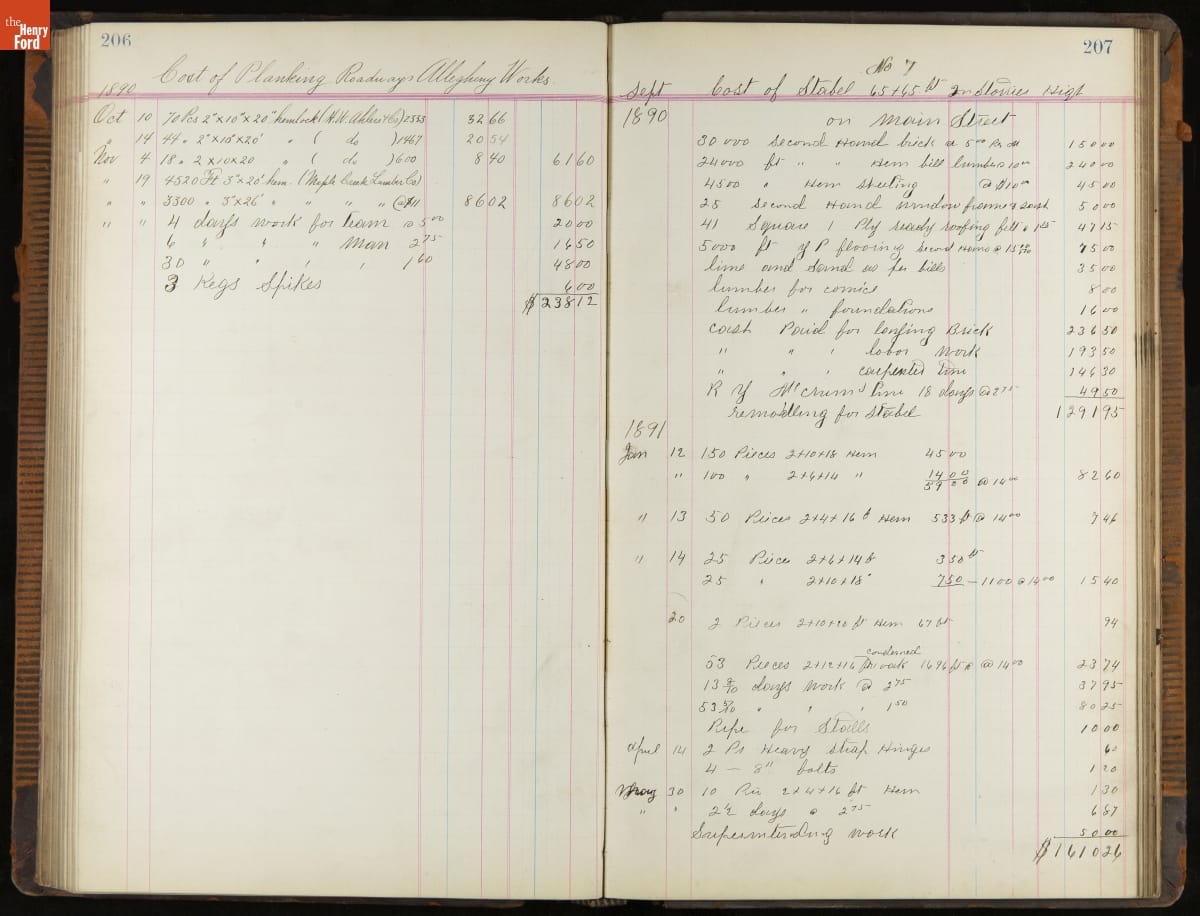 the Henry Ford
206
Cost of Planking Roadways Allegheny Works.
1890
Oct 10 70 Pcs 2"x10"x20" hemlock (H.W. & Co) 2333 32 66
" 14 44 " 2"x10"x20' " ( do ) 1467 20 54
Nov 4 18 " 2x10x20 " ( do ) 600 8 40 61 60
" 19 4520 Ft 3"x20' hem. (Maple Creek Lumber Co)
" " 3300 " 3"x26' " " " " @ $11 86 02 86 02
" " 4 days work for team @ 5 00 20 00
6 " " " Man 2 75 16 50
30 " " " 1 60 48 00
3 Kegs Spikes 6 00
$ 238 12
207
No 7
Sept Cost of Stabel 65+65 ft 2n Stories High
1890 on Main Street
30000 Second Hand brick @ 5 00 Pr M 150 00
24000 ft " " Hem bill lumber @ 10 00 240 00
4500 " Hem Sheeting @ $10 00 45 00
25 Second Hand window frames & Sash 50 00
41 Square 1 Ply ready roofing felt @ 1 15 47 15
5000 ft Y P flooring Second Hand @ 15 00 75 00
lime and Sand as per bills 35 00
lumber for cornice 8 00
lumber " foundations 16 00
cash Paid for laying Brick 236 50
" " " labor work 193 50
" " " carpenter time 146 30
R Y time 18 days @ 2 75 49 50
remodling for Stabel 1291 95
1891
Jan 12 150 Pieces 2+10+18 Hem 4500
" 100 " 2+6+14 " 1400
5900 @ 14 00 82 60
" 13 50 Pieces 2+4+16 ft Hem 533 ft @ 14 00 7 46
" 14 25 Pieces 2+6+14 ft 350 ft
25 " 2+10+18" 750 - 1100 @ 14 00 15 40
20 2 Pieces 2+10+20 ft Hem 67 ft 94
condemned
53 Pieces 2+12+16 oak 1696 ft @ 14 00 23 74
13 8/10 days work @ 2 75 37 95
53 5/10 " " " 1 50 80 25
Pipe for Stalls 10 00
April 14 2 Ps Heavy Strap Hinges 60
4 - 8" bolts 1 20
May 30 10 Pis 2+4+16 ft Hem 1 30
" " 2½ days @ 2 75 6 87
Superintending work 50 00
$ 1610 26